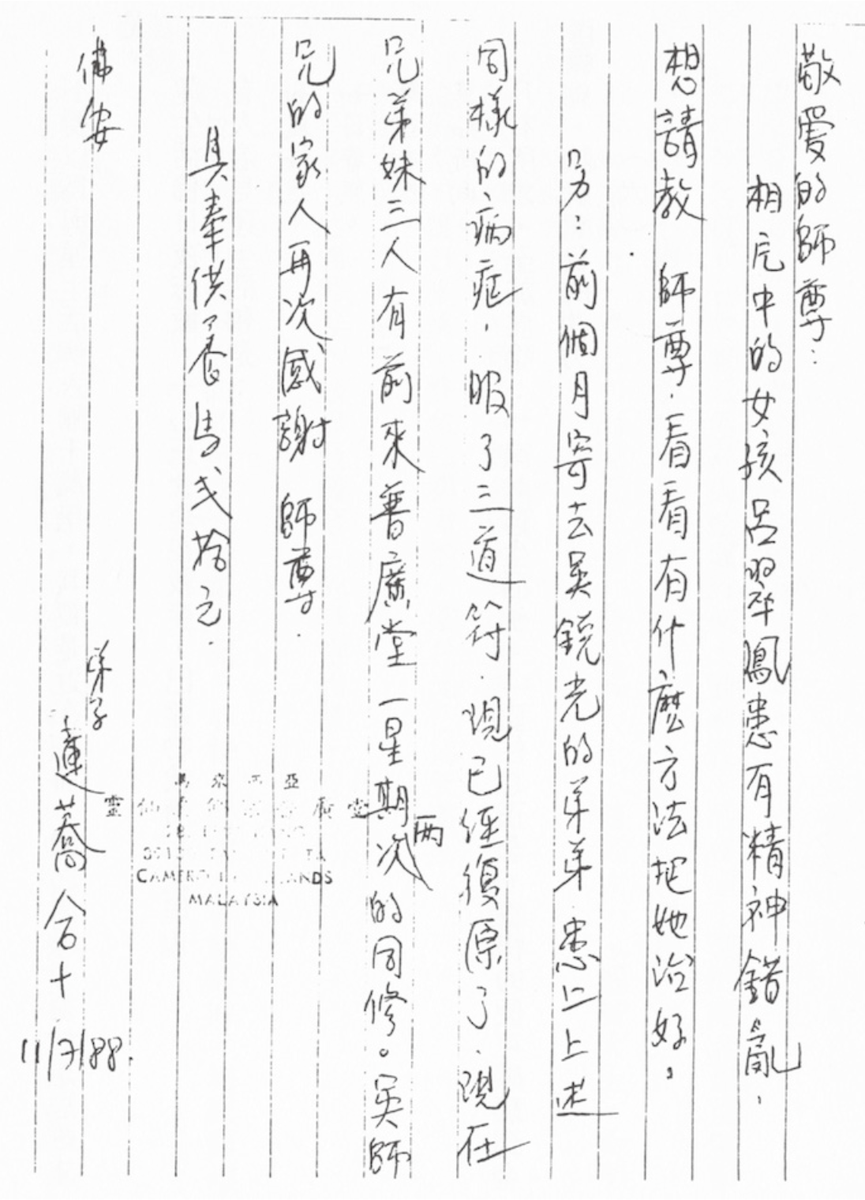 敬爱的師尊：
相片中的女孩呂翠鳳患有精神錯亂，
想請教 師尊．看看有什麽方法把她治好。
另：前個月寄去吳鏡光的弟弟．患上述
同樣的病症，服了三道符．現已經復原了．現在
兄弟妹三人有前來普廣堂一星期两次的同修。吳師
兄的家人再次感謝 師尊．
具奉供养馬弍拾元．
佛安
弟子
蓮蕎合十
11/7/88.
馬來西亞
CAMERON HIGHLANDS
MALAYSIA